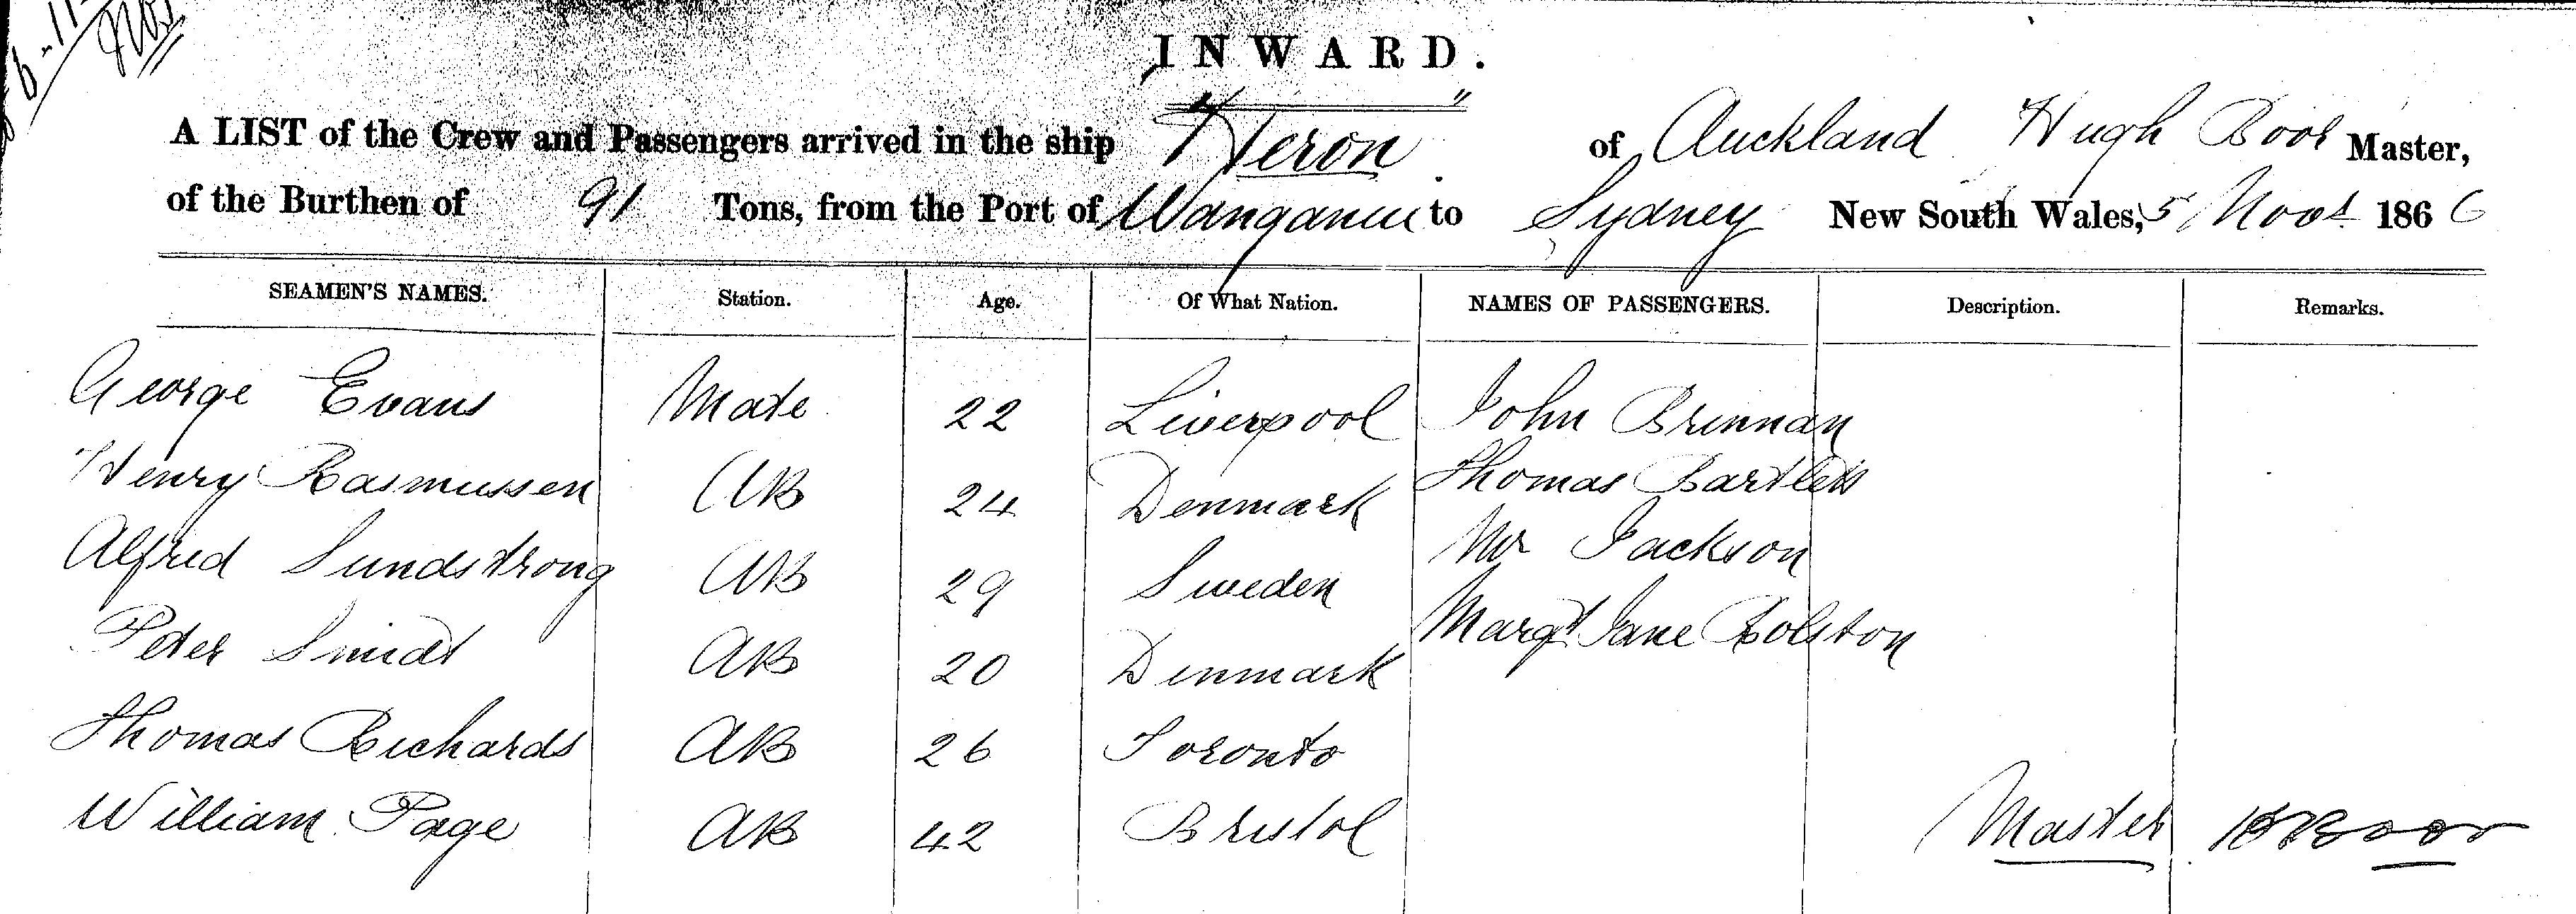 INWARD.
A LIST of the Crew and Passengers arrived in the ship "Heron" of Auckland Hugh Boor Master,
of the Burthen of 91 Tons, from the Port of Wanganui to Sydney New South Wales, 5 Novr 1866
SEAMEN'S NAMES. Station. Age. Of What Nation. NAMES OF PASSENGERS. Description. Remarks.
George Evans Mate 22 Liverpool John Brinnan
Henry Rasmussen AB 24 Denmark Thomas Bartlett
Alfred Sundstrong AB 29 Sweden Mr Jackson
Peter Smidt AB 20 Denmark Margt Jane Rolston
Thomas Richards AB 26 Toronto
William Page AB 42 Bristol Master H Boor